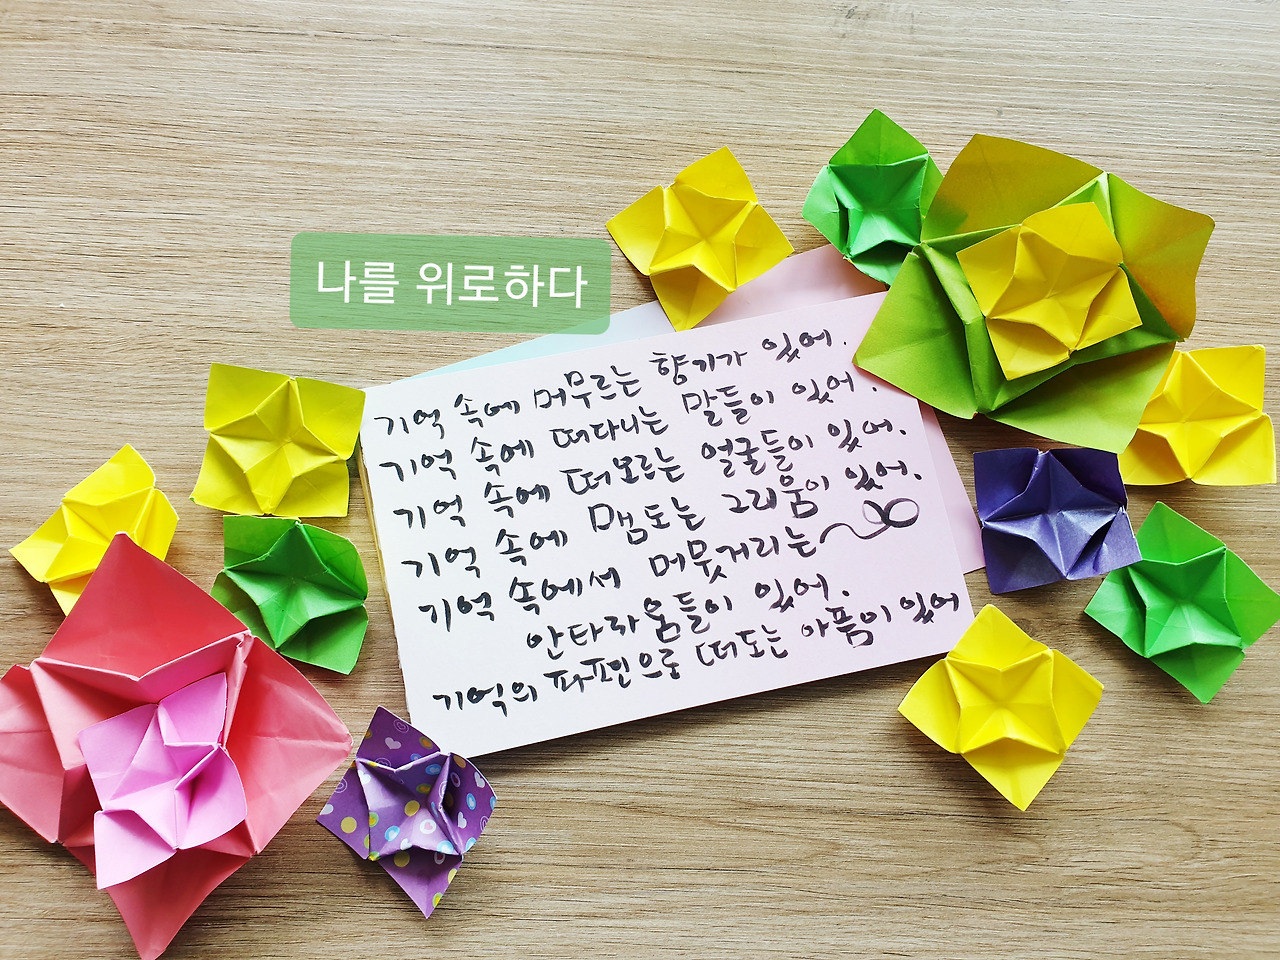 나를 위로하다
기억 속에 머무르는 향기가 있어.
기억 속에 떠다니는 말들이 있어.
기억 속에 떠오르는 얼굴들이 있어.
기억 속에 맴도는 그리움이 있어.
기억 속에서 머뭇거리는
안타까움들이 있어.
기억의 파편으로 떠도는 아픔이 있어